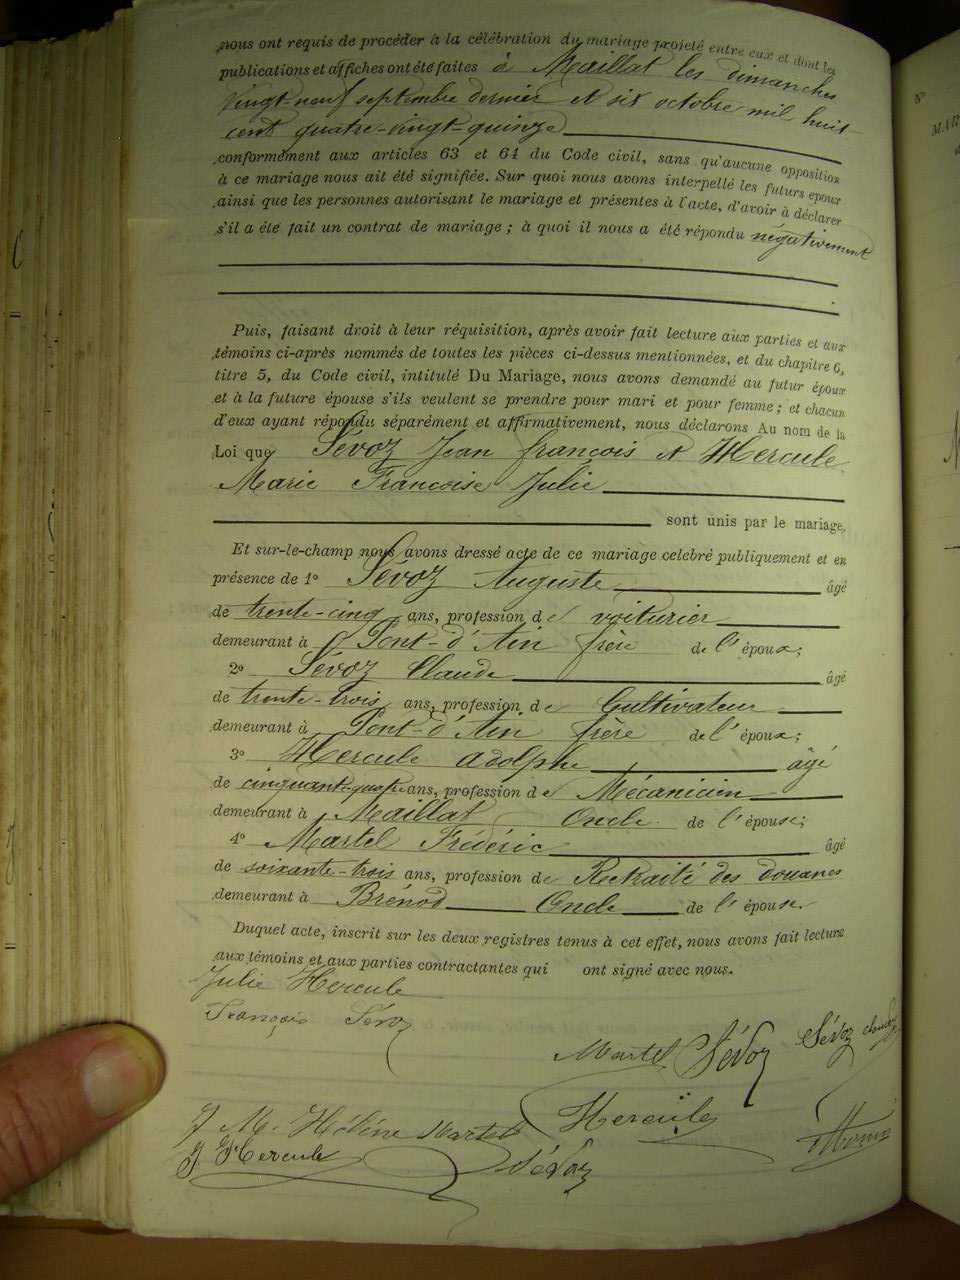 nous ont requis de procéder à la célébration du mariage projeté entre eux et dont les
publications et affiches ont été faites à Maillat les dimanches
vingt-neuf septembre dernier et six octobre mil huit
cent quatre-vingt-quinze
conformément aux articles 63 et 64 du Code civil, sans qu'aucune opposition
à ce mariage nous ait été signifiée. Sur quoi nous avons interpellé les futurs époux
ainsi que les personnes autorisant le mariage et présentes à l'acte, d'avoir à déclarer
s'il a été fait un contrat de mariage ; à quoi il nous a été répondu négativement
Puis, faisant droit à leur réquisition, après avoir fait lecture aux parties et aux
témoins ci-après nommés de toutes les pièces ci-dessus mentionnées, et du chapitre 6,
titre 5, du Code civil, intitulé Du Mariage, nous avons demandé au futur époux
et à la future épouse s'ils veulent se prendre pour mari et pour femme ; et chacun
d'eux ayant répondu séparément et affirmativement, nous déclarons Au nom de la
Loi que Sévoz Jean François et Hercule
Marie Françoise Julie
sont unis par le mariage,
Et sur-le-champ nous avons dressé acte de ce mariage celebré publiquement et en
présence de 1º Sévoz Auguste âgé
de trente-cinq ans, profession de voiturier
demeurant à Pont-d'Ain frère de l'époux;
2º Sévoz Claude âgé
de trente-trois ans, profession de Cultivateur
demeurant à Pont-d'Ain frère de l'époux;
3º Hercule Adolphe âgé
de cinquante-quatre ans, profession de Mécanicien
demeurant à Maillat Oncle de l'épouse;
4º Martel Frédéric âgé
de soixante-trois ans, profession de Retraité des douanes
demeurant à Brénod Oncle de l'épouse.
Duquel acte, inscrit sur les deux registres tenus à cet effet, nous avons fait lecture
aux témoins et aux parties contractantes qui ont signé avec nous.
Julie Hercule
François Sévoz
Martel Sévoz Sévoz claude
J M. Hélène Martel Hercule
J. Hercule Sévoz